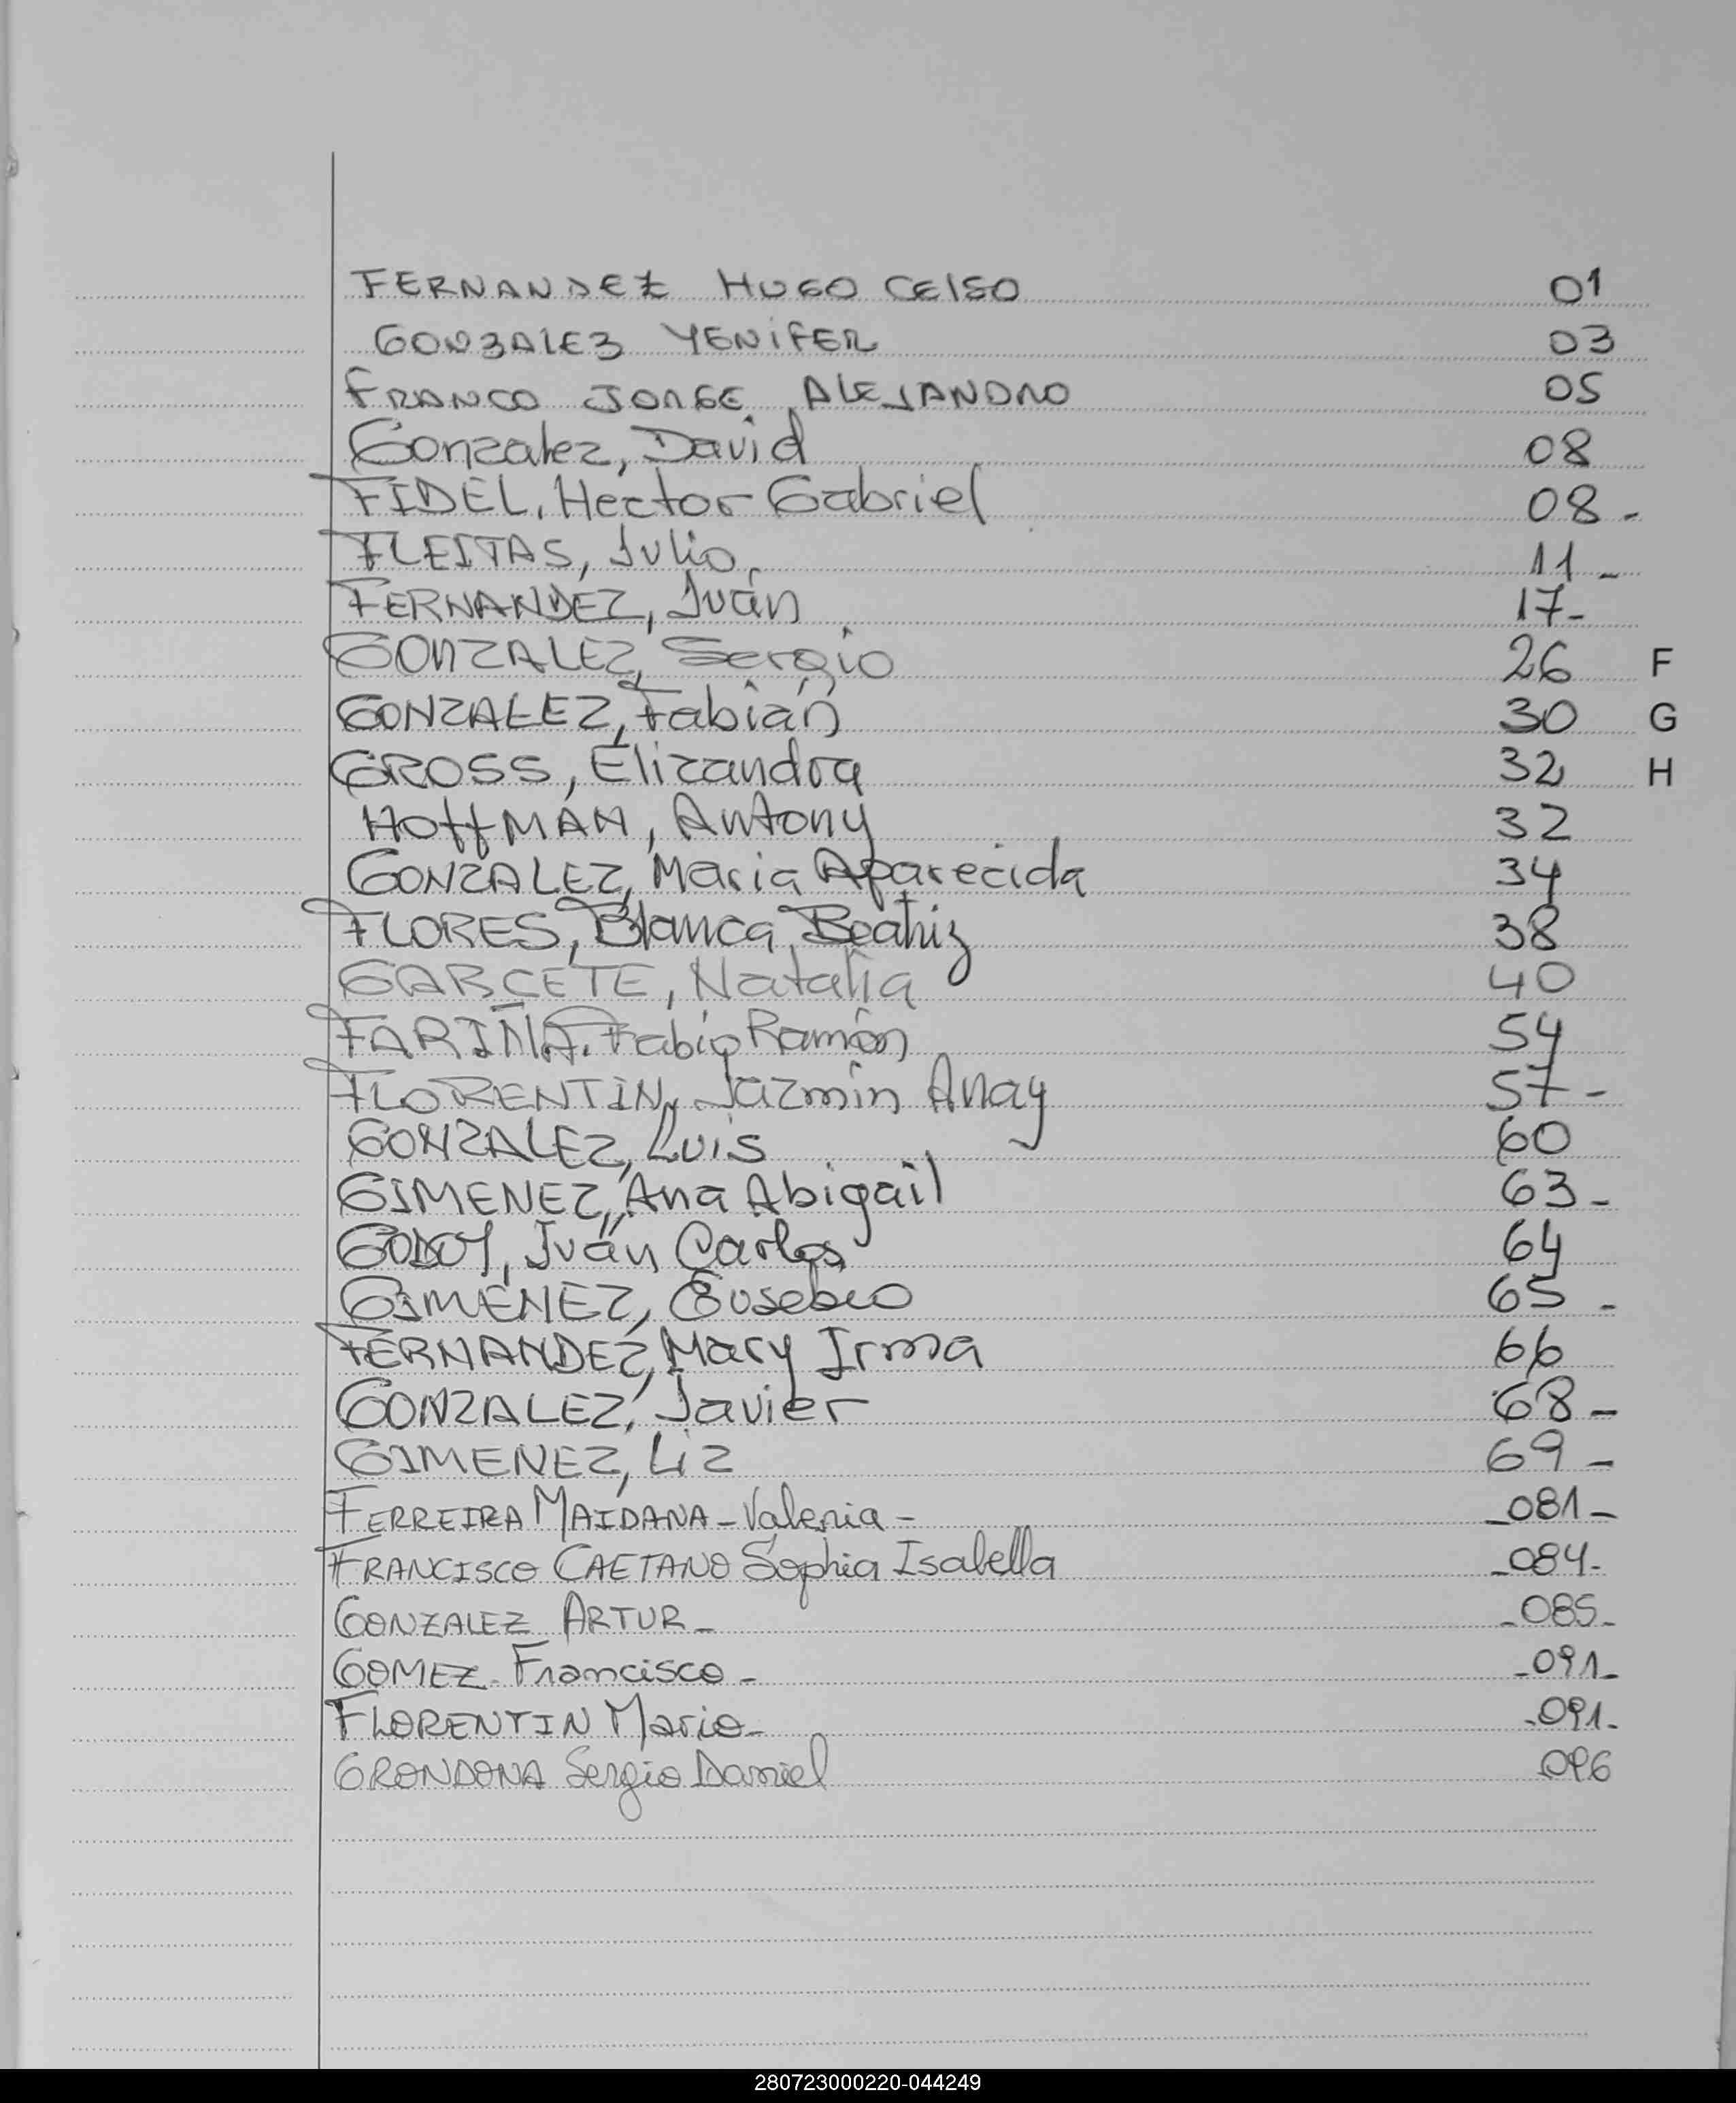 FERNANDEZ HUGO CELSO 01
GONZALEZ YENIFER 03
FRANCO JORGE ALEJANDRO 05
Gonzalez, David 08
FIDEL, Hector Gabriel 08-
FLEITAS, Julio 11-
FERNANDEZ, Iván 17-
GONZALEZ, Sergio 26 F
GONZALEZ, Fabián 30 G
GROSS, Elizandra 32 H
HOffMAN, Antony 32
GONZALEZ, Maria Aparecida 34
FLORES, Blanca Beatriz 38
GARCETE, Natalia 40
FARIÑA, Fabio Ramón 54
FLORENTIN, Jazmin Anay 57-
GONZALEZ, Luis 60
GIMENEZ, Ana Abigail 63-
GODOY, Iván Carlos 64
GIMENEZ, Eusebio 65-
FERNANDEZ, Mary Irma 66
GONZALEZ, Javier 68-
GIMENEZ, Liz 69-
FERREIRA MAIDANA-Valeria- -081-
FRANCISCO CAETANO Sophia Isabella -084-
GONZALEZ ARTUR- -085-
GOMEZ- Francisco- -091-
FLORENTIN Mario- -091-
GRONDONA Sergio Daniel 096
280723000220-044249